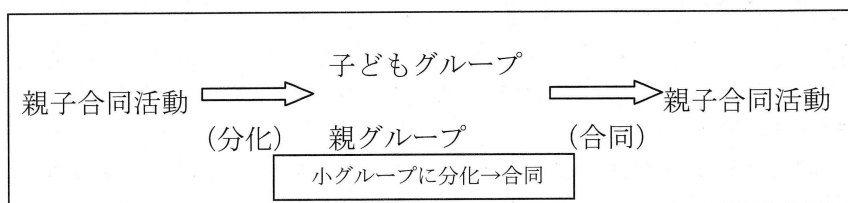 子どもグループ
親子合同活動 親子合同活動
(分化) 親グループ (合同)
小グループに分化→合同